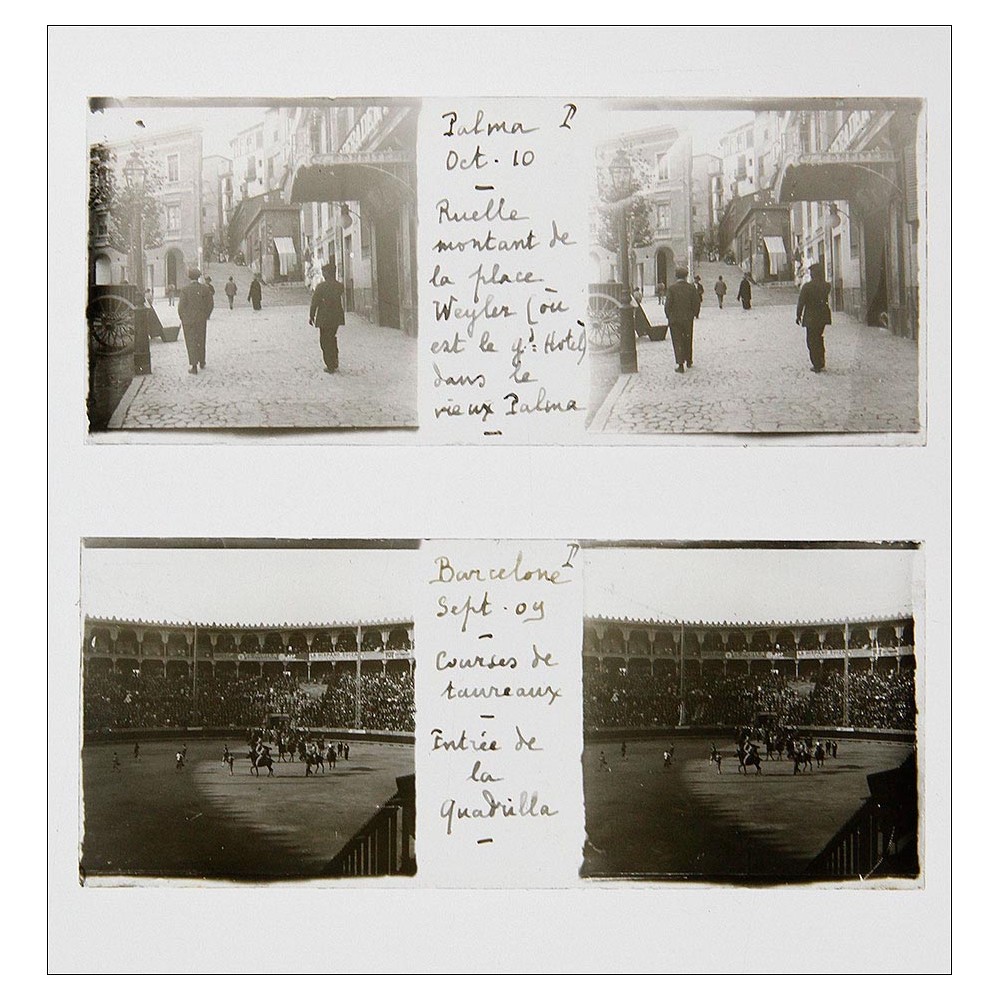 Palma P
Oct. 10
Ruelle
montant de
la place
Weyler (où
est le gd. Hotel)
dans le
vieux Palma
Barcelone P
Sept. 09
Courses de
taureaux
Entrée de
la
quadrilla